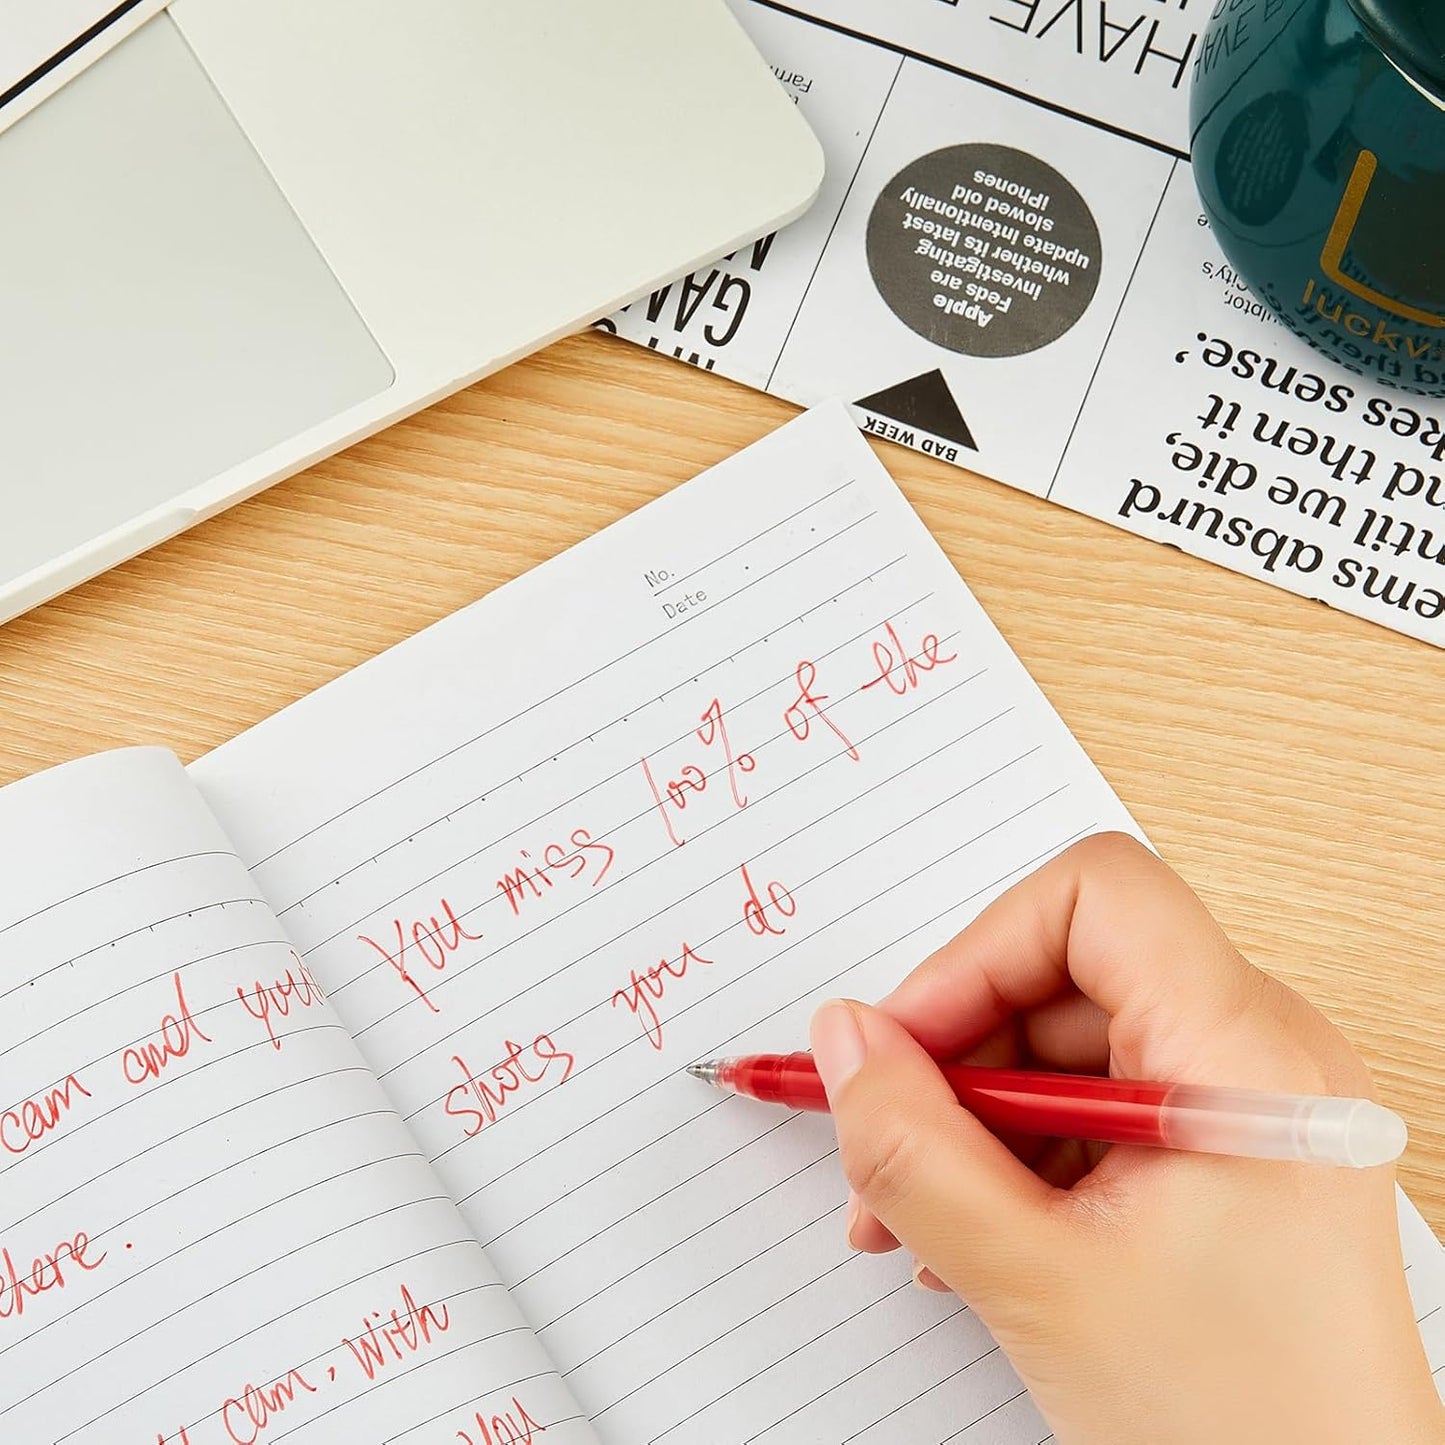 HAVE
Farm
GAM
Apple
Feds are
investigating
whether its latest
update intentionally
slowed old
iPhones
BAD WEEK
City's
sculptor,
ems absurd
ntil we die,
nd then it
kes sense.'
luckv
No.
Date
You miss 100% of the
shots you do
can and you'll
here.
can, with
You